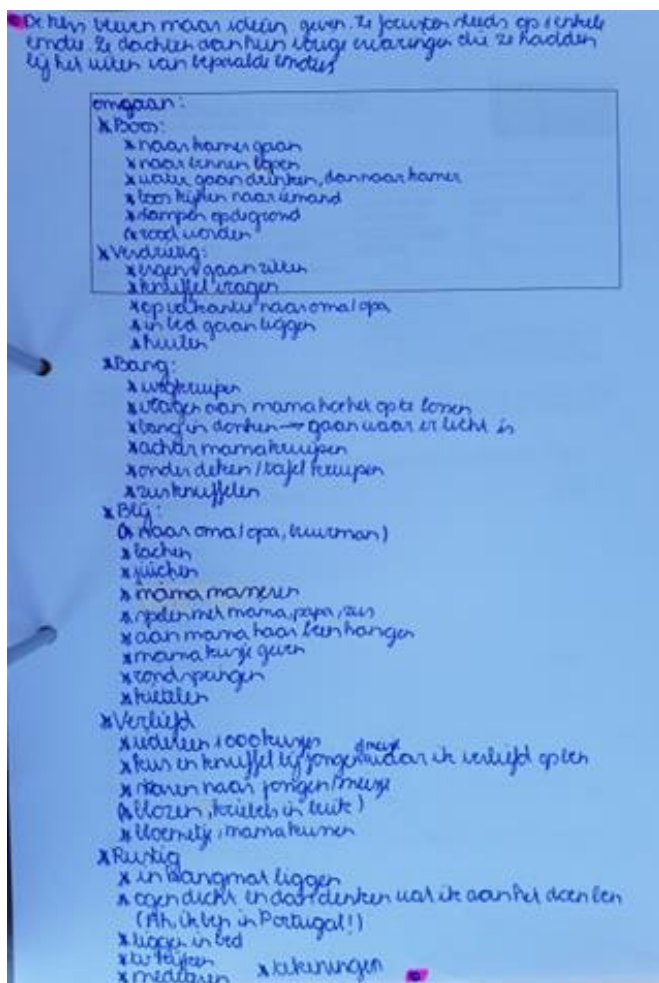 De kids bleven maar ideeën geven. Ze focusten steeds op 1 enkele
emotie. Ze dachten aan hun vorige ervaringen die ze hadden
bij het uiten van bepaalde emoties
omgaan:
x Boos:
x naar kamer gaan
x naar binnen lopen
x water gaan drinken, dan naar kamer
x boos kijken naar iemand
x stampen op de grond
(x rood worden
x Verdrietig:
x ergens gaan zitten
x knuffel vragen
x op vakantie naar oma/opa
x in bed gaan liggen
x huilen
x Bang:
x wegkruipen
x vragen aan mama het op te lossen
x bang in donker → gaan waar er licht is
x achter mama kruipen
x onder deken/tafel kruipen
x zus knuffelen
x Blij:
(x naar oma/opa, buurman)
x lachen
x juichen
x mama masseren
x spelen met mama, papa, zus
x aan mama haar been hangen
x mama kusje geven
x rondspringen
x kietelen
x Verliefd
x iedereen 1000 kusjes
x kus en knuffel bij jongen/meisje waar ik verliefd op ben
x staren naar jongen/meisje
(x blozen, kriebels in buik)
x bloemetje, mama kussen
x Rustig
x in hangmat liggen
x ogen dicht en dan denken wat ik aan het doen ben
(Ah, ik ben in Portugal!)
x liggen in bed
x tv kijken
x mediteren x tekeningen